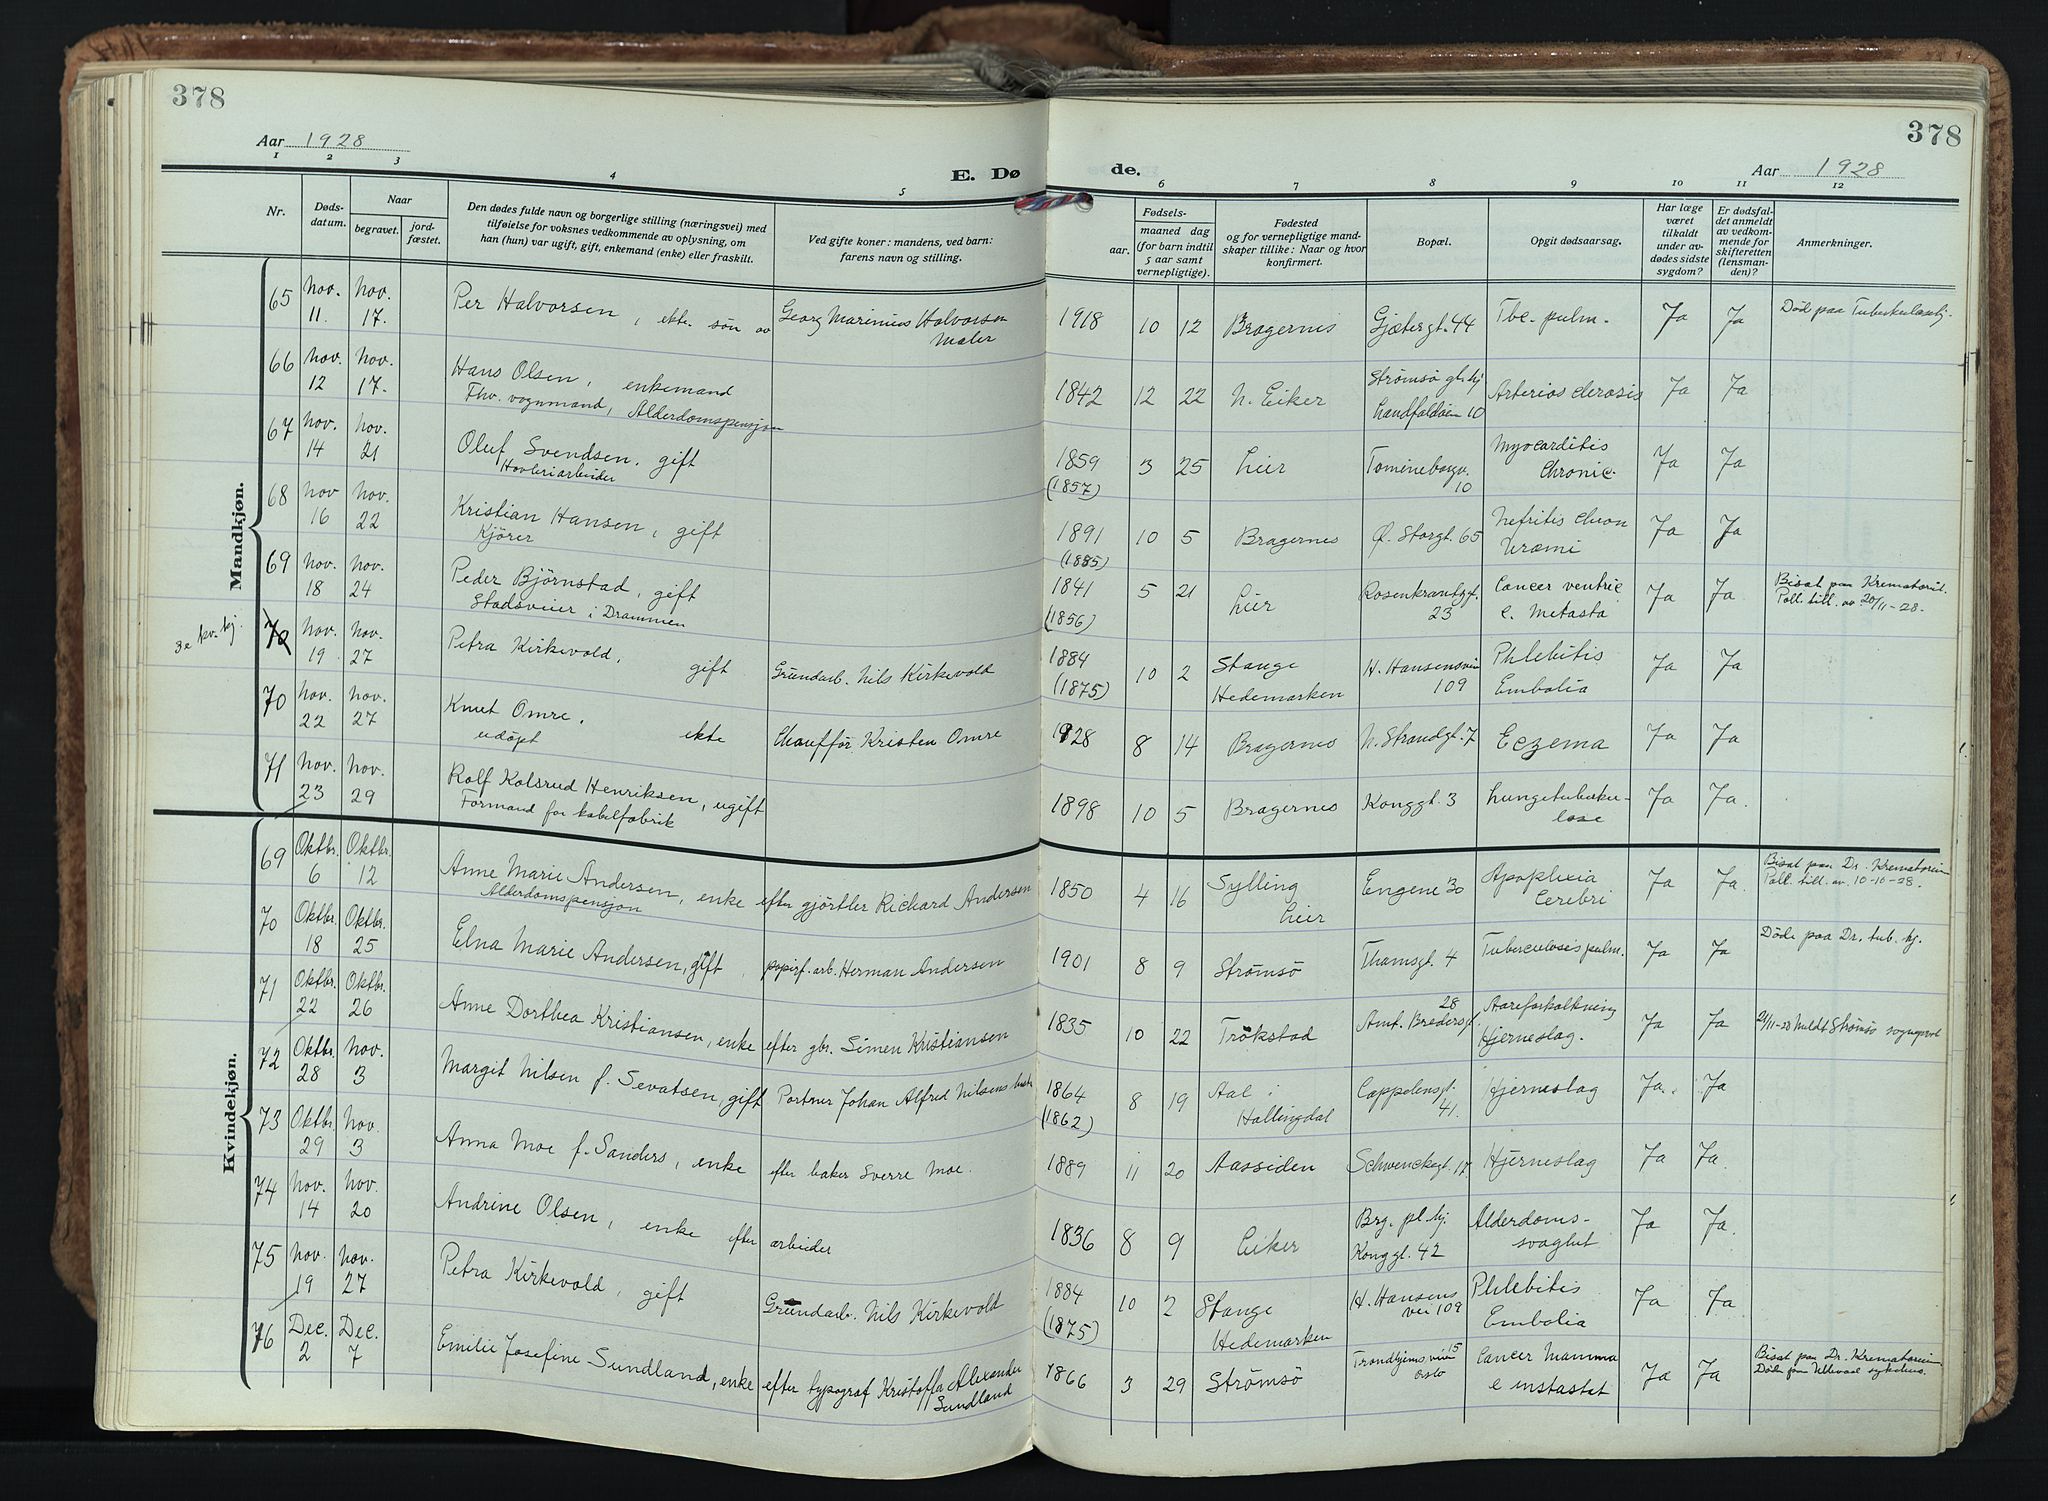 378
378
Aar 1928
E. Dø
de.
Aar 1928
1 2 3 4 5 6 7 8 9 10 11 12
Nr.
Døds-
datum.
Naar
begravet.
jord-
fæstet.
Den dødes fulde navn og borgerlige stilling (næringsvei) med
tilføielse for voksnes vedkommende av oplysning, om
han (hun) var ugift, gift, enkemand (enke) eller fraskilt.
Ved gifte koner: mandens, ved barn:
farens navn og stilling.
Fødsels-
aar. maaned dag
(for barn indtil
5 aar samt
vernepligtige).
Fødested
og for vernepligtige mand-
skaper tillike: Naar og hvor
konfirmert.
Bopæl.
Opgit dødsaarsag.
Har læge
været
tilkaldt
under av-
dødes sidste
sygdom?
Er dødsfal-
det anmeldt
av vedkom-
mende for
skifteretten
(lensman-
den)?
Anmerkninger.
Mandkjøn.
65 Nov. 11. Nov. 17. Per Halvorsen, ekte søn av Georg Marinius Halvorsen 1918 10 12 Bragernes Gjætergt. 44 Tbc. pulm. Ja Ja Død paa
Maler
66 Nov. 12 Nov. 17. Hans Olsen, enkemand 1842 12 22 N. Eiker Strømsø gl. hj. Arteriosclerosis Ja Ja
Fhv. vognmand, Alderdomspensjon Landfaldøen 10
67 Nov. 14 Nov. 21 Oluf Svendsen, gift 1859 3 25 Lier Tomineborgv. Myocarditis Ja Ja
Høvleriarbeider (1857) 10 Chronic.
68 Nov 16 Nov. 22 Kristian Hansen, gift 1891 10 5 Bragernes Ø. Storgt. 65 Nefritis chron Ja Ja
Kjører (1885) Uræmi
69 Nov. 18 Nov. 24 Peder Bjørnstad, gift 1841 5 21 Lier Rosenkrantzgt. Cancer ventric Ja Ja Bisat paa Krematoriet.
Stadsveier i Drammen (1856) 23 c. Metasta Poll. till. av 20/11-28.
3e kv. kj. 70 Nov. 19 Nov. 27 Petra Kirkevold, gift Grundarb. Nils Kirkevold 1884 10 2 Stange H. Hansensvei Phlebitis Ja Ja
(1875) Hedemarken 109 Embolia
70 Nov. 22 Nov. 27 Knut Omre. ekte Chauffør Kristen Omre 1928 8 14 Bragernes N. Strandgt. 7 Eczema Ja Ja
udøpt
71 Nov. 23 Nov. 29 Rolf Kolsrud Henriksen, ugift 1898 10 5 Bragernes Konggt. 3 Lungetuberku- Ja Ja.
Formand for kabelfabrik lose
Kvindekjøn.
69 Oktbr. 6 Oktbr. 12 Anne Marie Andersen, enke efter gjørtler Richard Andersen 1850 4 16 Sylling Engene 30 Apoplexia Ja Ja. Bisat paa Dr. Krematorium
Alderdomspensjon Lier Cerebri Poll. till. av. 10-10-28.
70 Oktbr. 18 Oktbr. 25 Elna Marie Andersen, gift papirf. arb. Herman Andersen 1901 8 9 Strømsø Thamsgt. 4 Tuberculosis pulm. Ja Ja Døde paa Dr. tub. hj.
71 Oktbr. 22 Oktbr. 26 Anne Dorthea Kristiansen, enke efter gbr. Simen Kristiansen 1835 10 22 Trökstad Amt. Bredersgt. 28 Aareforkalkning Ja Ja Meldt Strømsø sogneprest
Hjerneslag.
72 Oktbr. 28 Nov. 3 Margit Nilsen f. Sevatsen, gift Portner Johan Alfred Nilsens 1864 8 19 Aal i Cappelensgt. Hjerneslag Ja. Ja
(1862) Hallingdal 41.
73 Oktbr. 29 Nov. 3 Anna Moe f. Sanders, enke efter baker Sverre Moe. 1889 11 20 Aassiden Schwenckegt. Hjerneslag Ja Ja.
74 Nov. 14 Nov. 20 Andrine Olsen, enke efter arbeider 1836 8 9 Eiker Brg. pl. hj. Alderdoms- Ja Ja.
Konggt. 42 svaghet
75 Nov. 19 Nov. 27 Petra Kirkevold, gift Grundarb. Nils Kirkevold 1884 10 2 Stange H. Hansens Phlebitis Ja Ja
(1875) Hedemarken vei 109 Embolia
76 Dec. 2 Dec. 7 Emilie Josefine Sundland, enke efter typograf Kristoffer Alexander 1866 3 29 Strømsø Trondhjems vei 15 Cancer Mamma Ja Ja Bisat paa Dr. Krematorium
Sundland Oslo Døde paa Ullevaal sykehus.